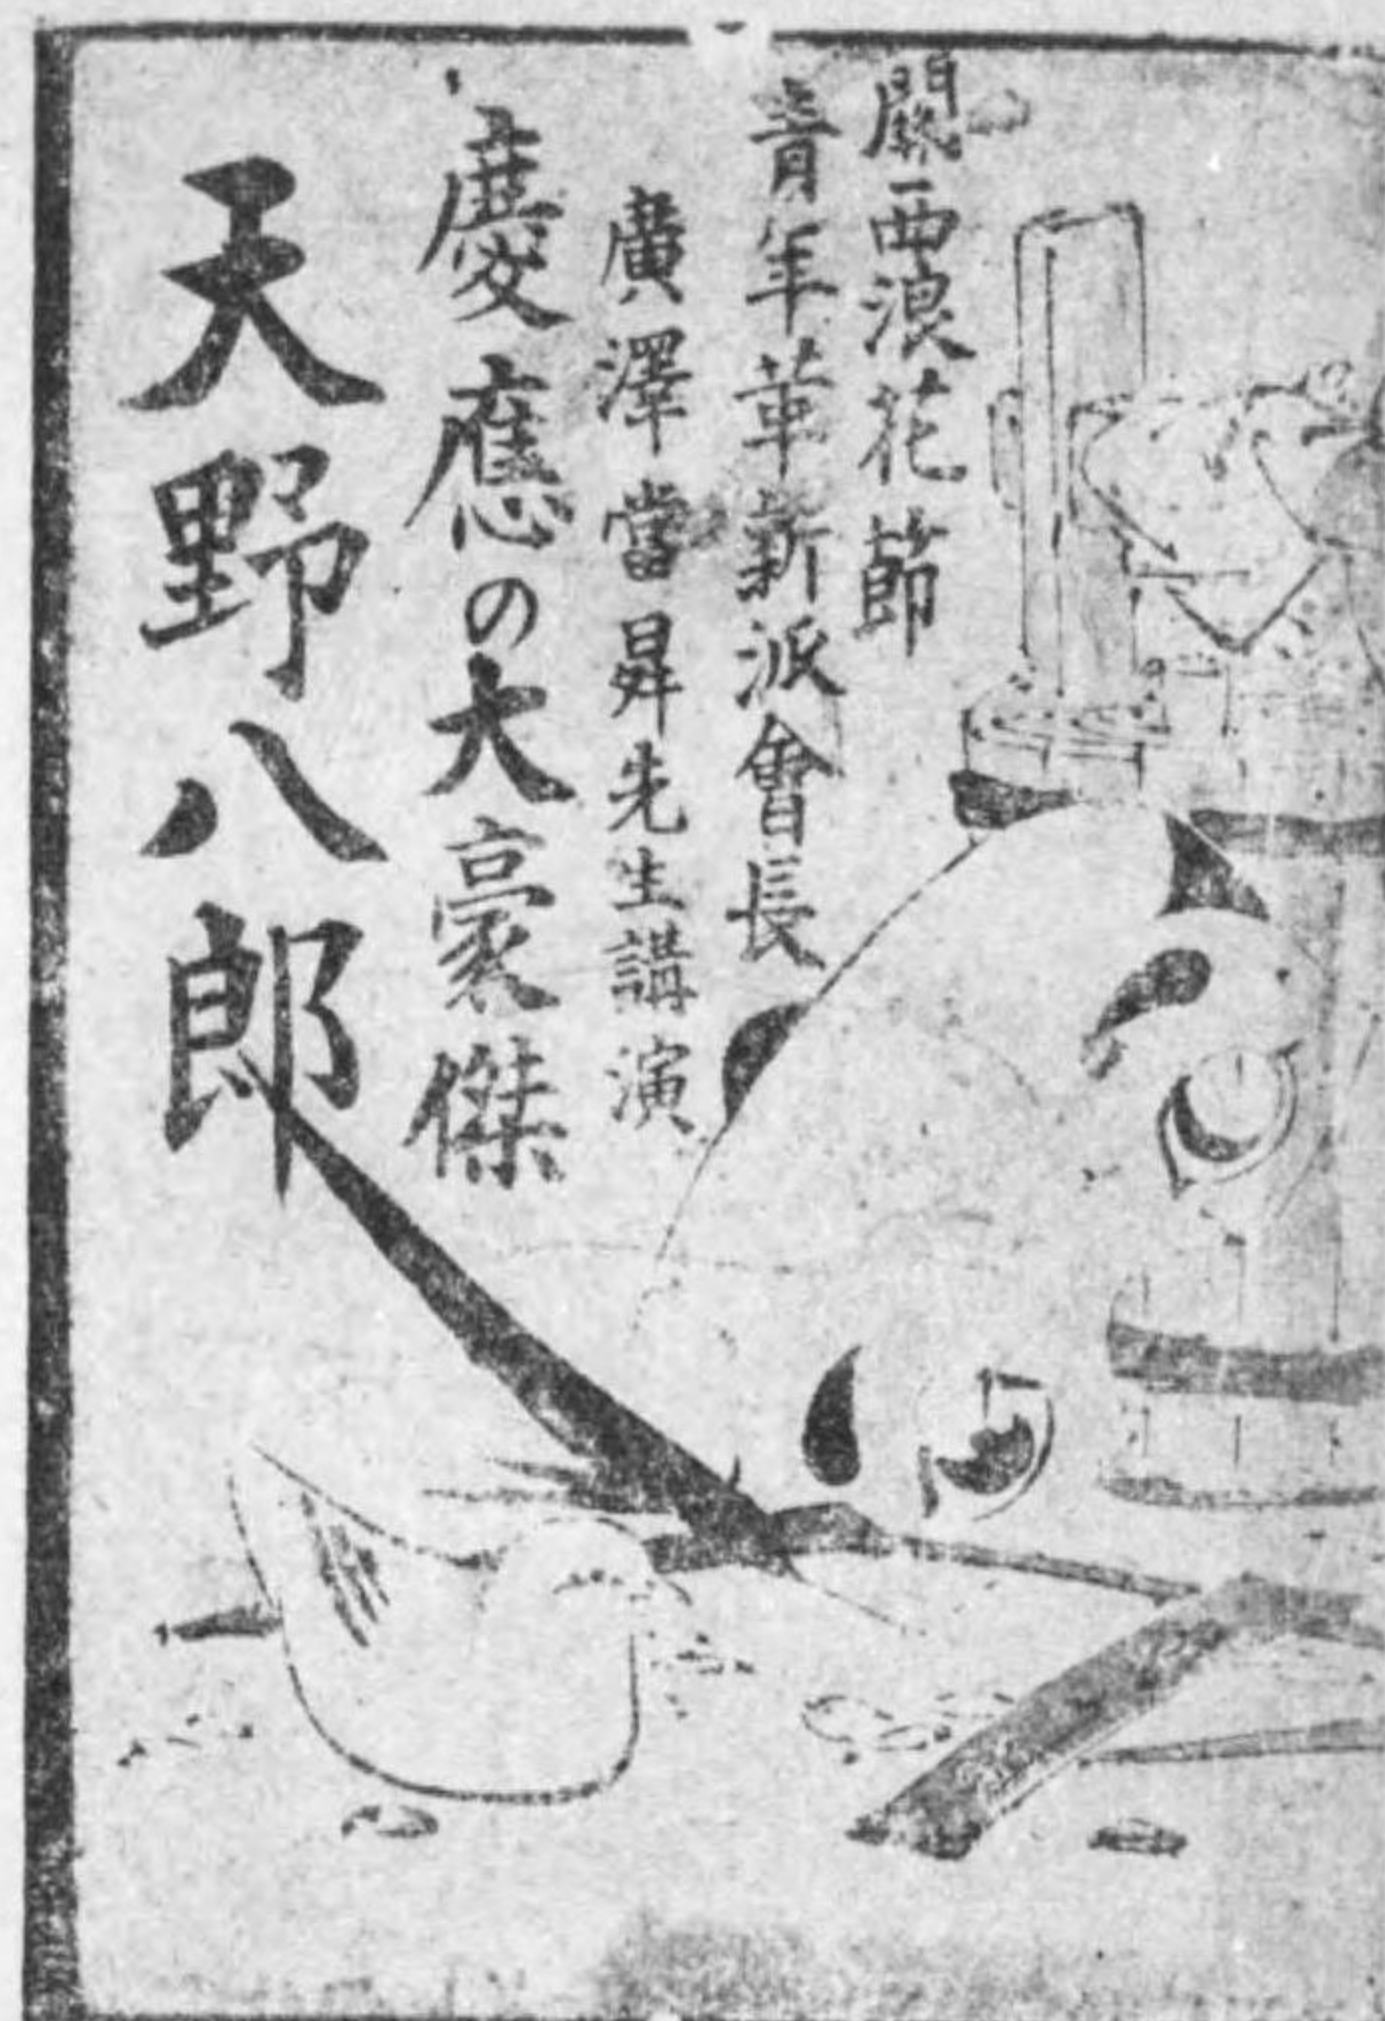 關西浪花節
青年革新派會長
廣澤當昇先生講演
慶應の大豪傑
天野八郎